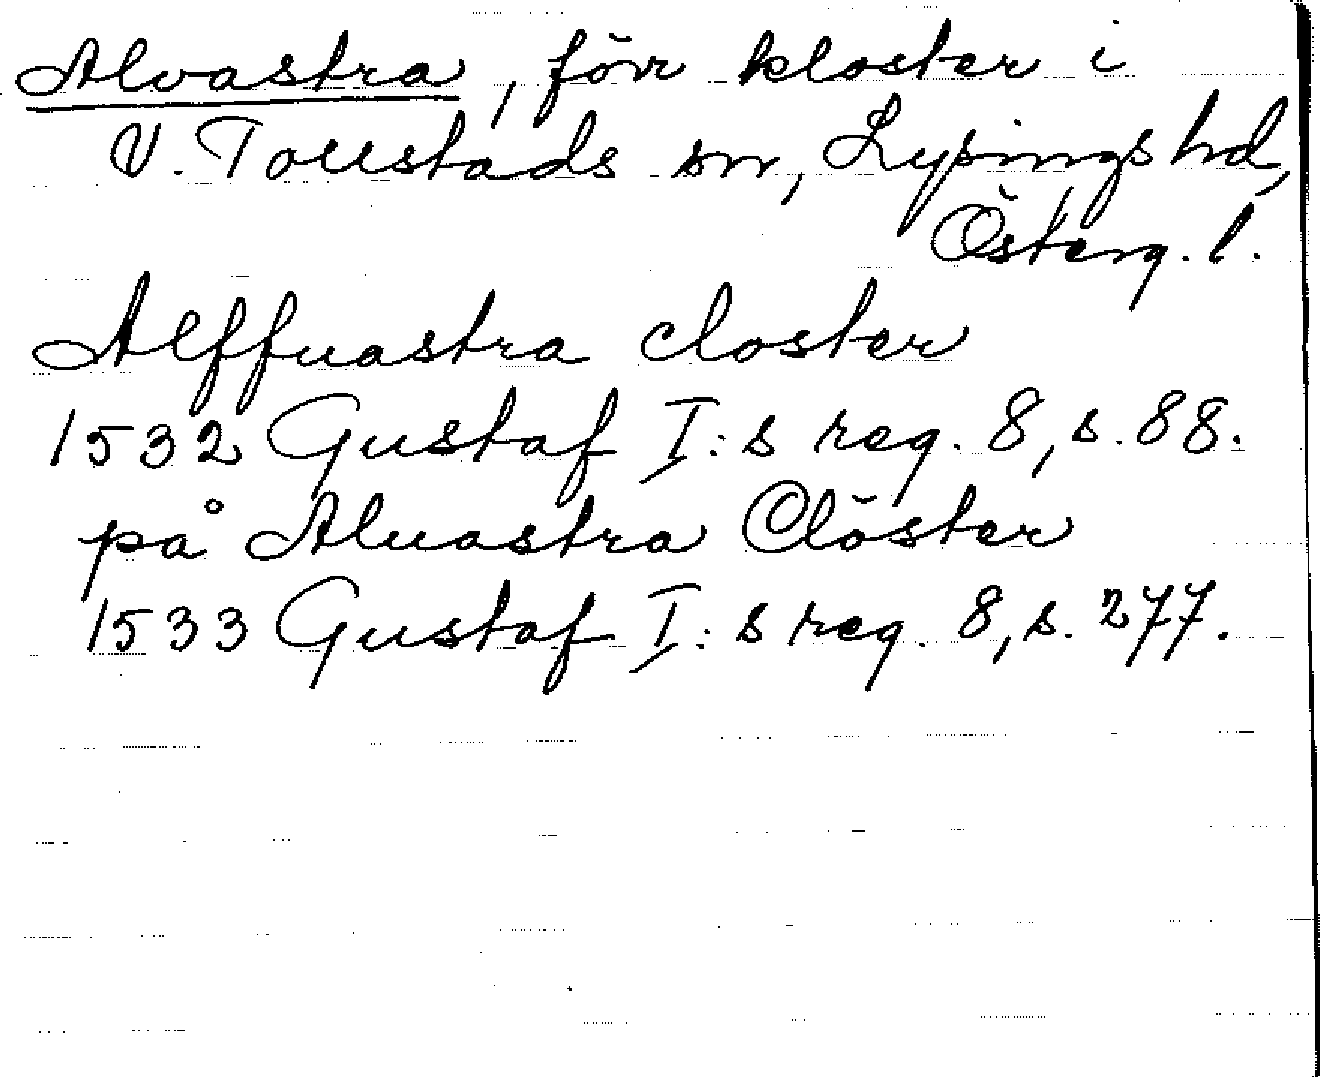 Alvastra, förr kloster i
V. Tollstads sn, Lysings hd,
Österg. l.
Alffuastra closter
1532 Gustaf I:s reg. 8, s. 88.
på Aluastra Clöster
1533 Gustaf I:s reg. 8, s. 277.